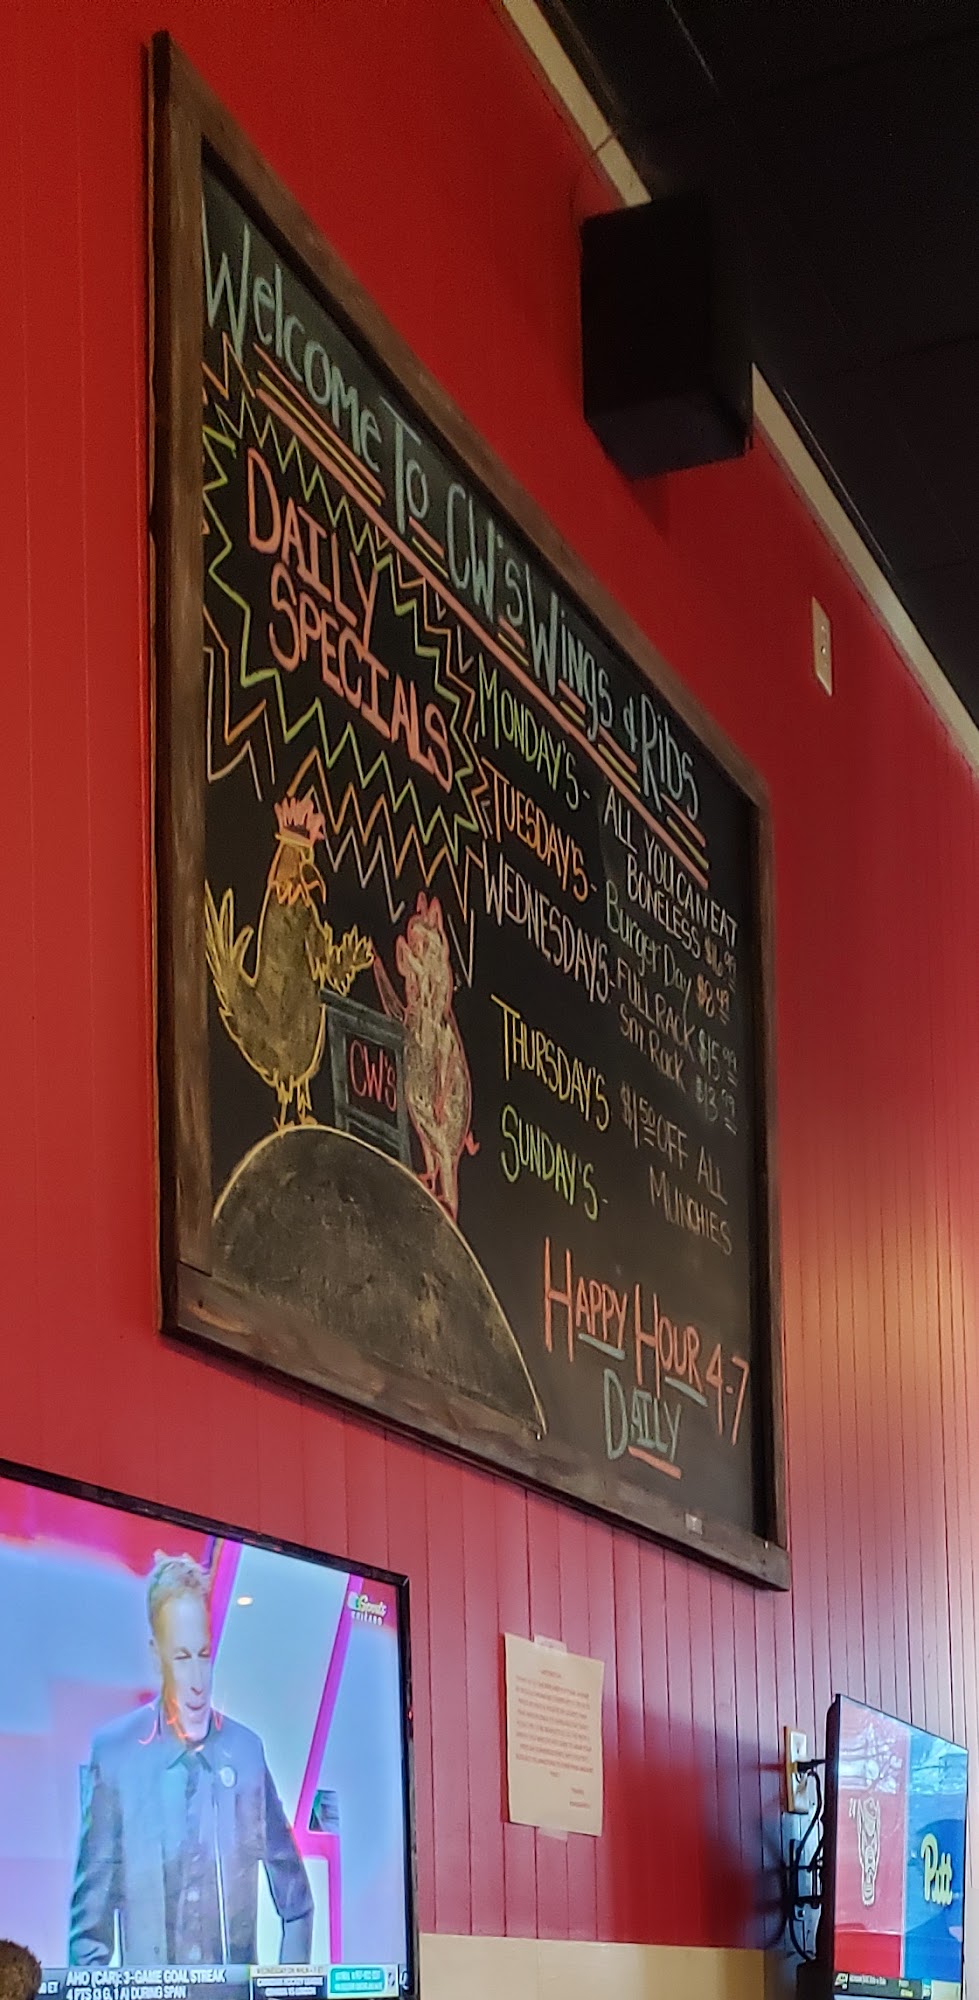 Welcome To CW's Wings & Ribs
DAILY
SPECIALS
MONDAY'S- ALL YOU CAN EAT
BONELESS $16.99
TUESDAY'S- Burger Day $8.49
WEDNESDAYS- FULL RACK $15.99
Sm. Rack $13.99
THURSDAY'S $1.50 OFF ALL
MUNCHIES
SUNDAY'S-
CW'S
HAPPY HOUR 4-7
DAILY
Sports
CHICAGO
AHO (CAR): 3-GAME GOAL STREAK
4 PTS (3 G, 1 A) DURING SPAN
Pitt